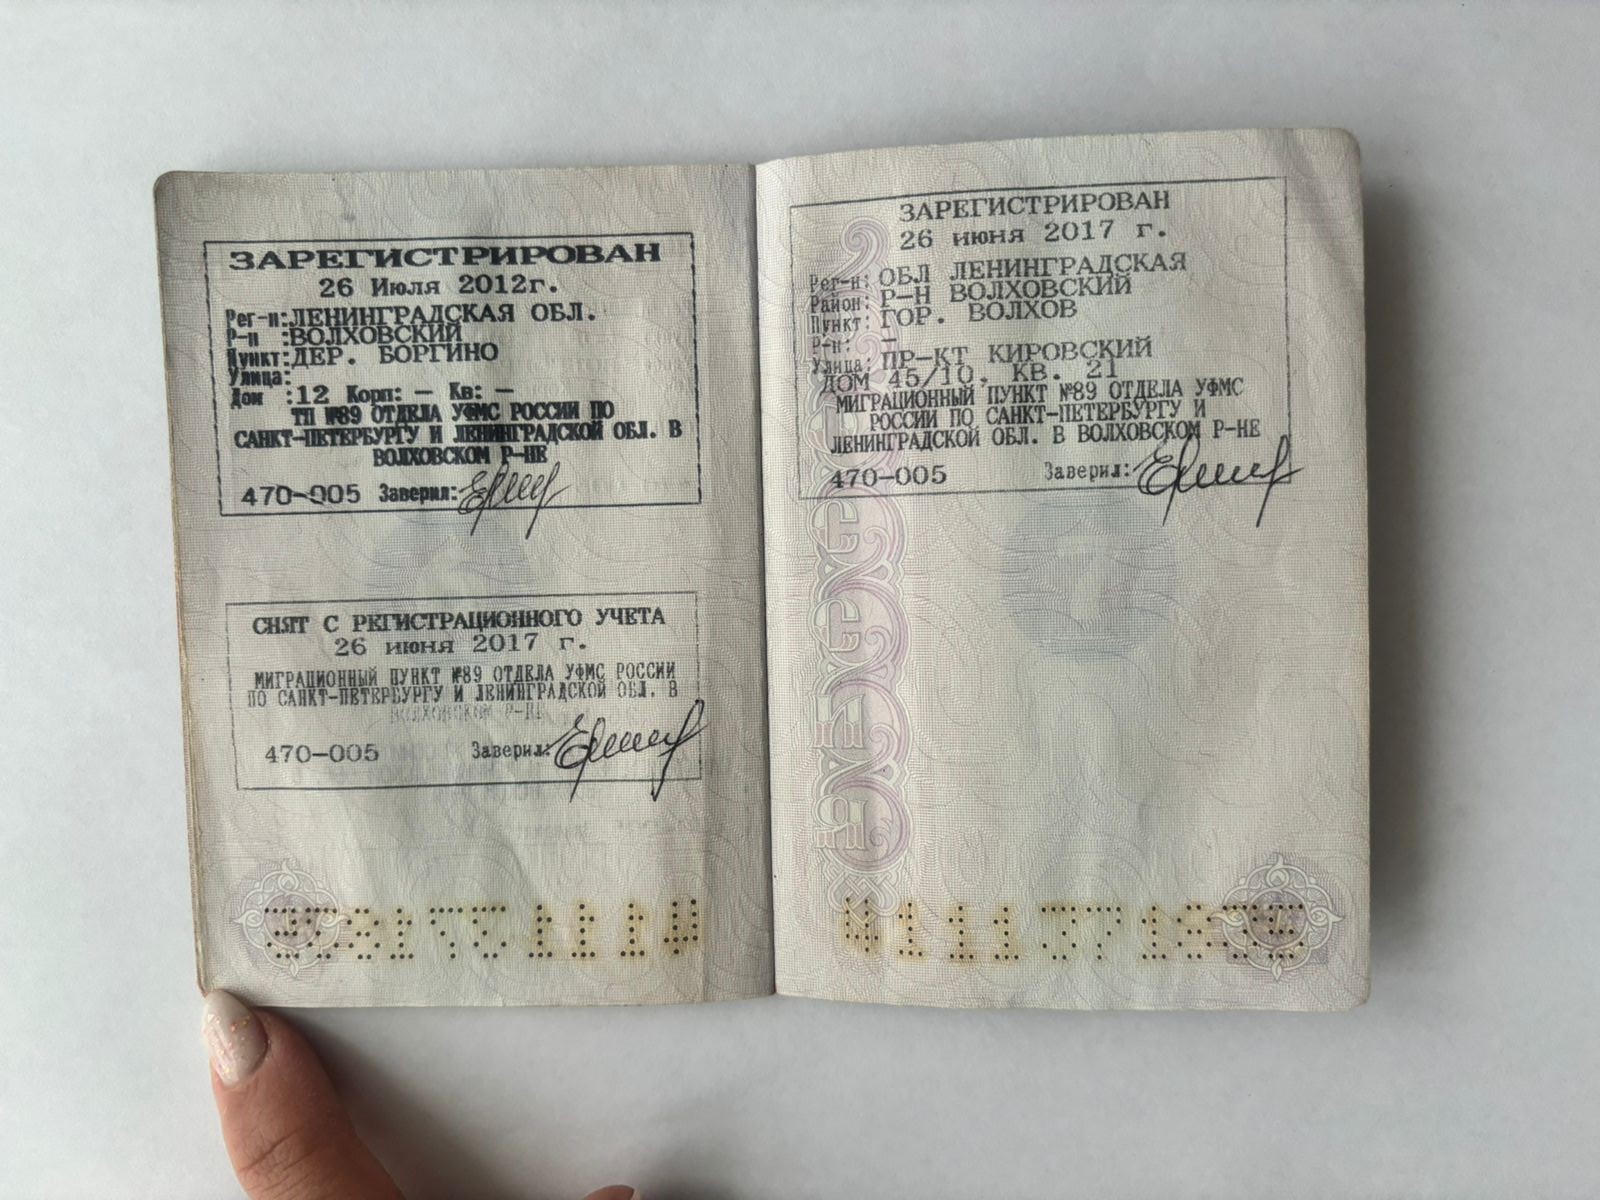 ЗАРЕГИСТРИРОВАН
26 Июля 2012г.
Рег-н:ЛЕНИНГРАДСКАЯ ОБЛ.
Р-н :ВОЛХОВСКИЙ
Пункт:ДЕР. БОРГИНО
Улица:
Дом :12 Корп: — Кв: —
ТП №89 ОТДЕЛА УФМС РОССИИ ПО
САНКТ-ПЕТЕРБУРГУ И ЛЕНИНГРАДСКОЙ ОБЛ. В
ВОЛХОВСКОМ Р-НЕ
470-005 Заверил:
СНЯТ С РЕГИСТРАЦИОННОГО УЧЕТА
26 июня 2017 г.
МИГРАЦИОННЫЙ ПУНКТ №89 ОТДЕЛА УФМС РОССИИ
ПО САНКТ-ПЕТЕРБУРГУ И ЛЕНИНГРАДСКОЙ ОБЛ. В
ВОЛХОВСКОМ Р-НЕ
470-005 Заверил:
ЗАРЕГИСТРИРОВАН
26 июня 2017 г.
Рег-н: ОБЛ ЛЕНИНГРАДСКАЯ
Район: Р-Н ВОЛХОВСКИЙ
Пункт: ГОР. ВОЛХОВ
Р-н: —
Улица: ПР-КТ КИРОВСКИЙ
ДОМ 45/10, КВ. 21
МИГРАЦИОННЫЙ ПУНКТ №89 ОТДЕЛА УФМС
РОССИИ ПО САНКТ-ПЕТЕРБУРГУ И
ЛЕНИНГРАДСКОЙ ОБЛ. В ВОЛХОВСКОМ Р-НЕ
470-005 Заверил: